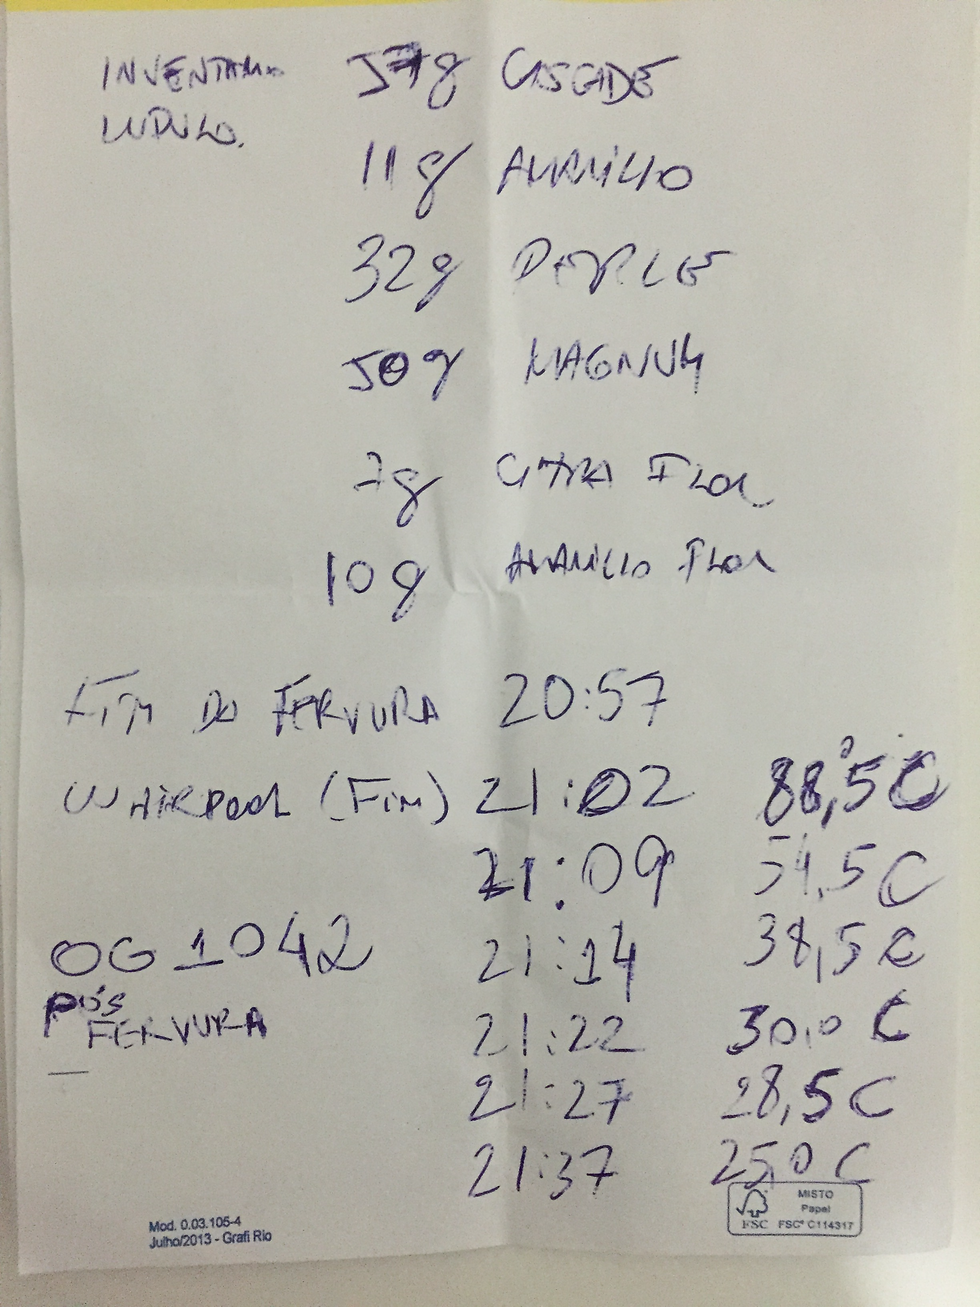 INVENTARIO 57g CASCADE
LUPULO.
11g AMARILLO
32g PERLE
50g MAGNUM
7g CITRA FLOR
10g AMARILLO FLOR
FIM DO FERVURA 20:57
WHIRPOOL (FIM) 21:02 88,5°C
21:09 54,5 C
OG 1042 21:14 38,5 C
PÓS
FERVURA 21:22 30,0 C
21:27 28,5 C
21:37 25,0 C
MISTO
Papel
FSC FSC® C114317
Mod. 0.03.105-4
Julho/2013 - Grafi Rio